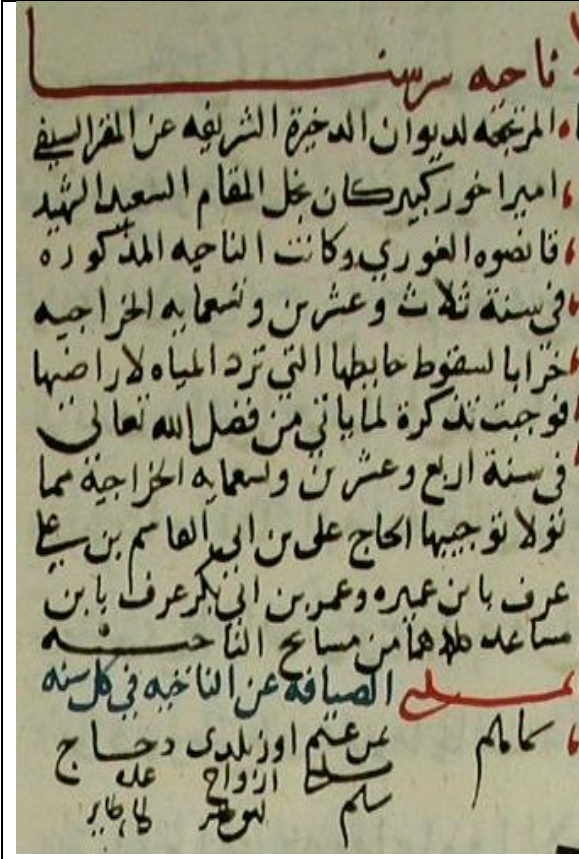 ناحيه سرسنا
المرتجعه لديوان الدخيرة الشريفه عن المقر السيفي
اميراخور كبير كان نجل المقام السعيد الشهيد
قانصوه الغوري وكانت الناحيه المذكوره
في سنة ثلاث وعشرين وتسعمايه الخراجيه
خرابا لسقوط حايطها التي ترد المياه لاراضيها
فوجبت تذكرة لما ياتي من فضل الله تعالى
في سنة اربع وعشرين وتسعمايه الخراجية مما
تولا توجيبها الحاج علي بن ابي القاسم بن علي
عرف بابن عميره وعمر بن ابي بكر عرف بابن
مساعد كلاهما من مشايخ الناحيه
الضيافه عن الناحيه في كل سنه
غنم اوز بلدي دجاج
ازواج